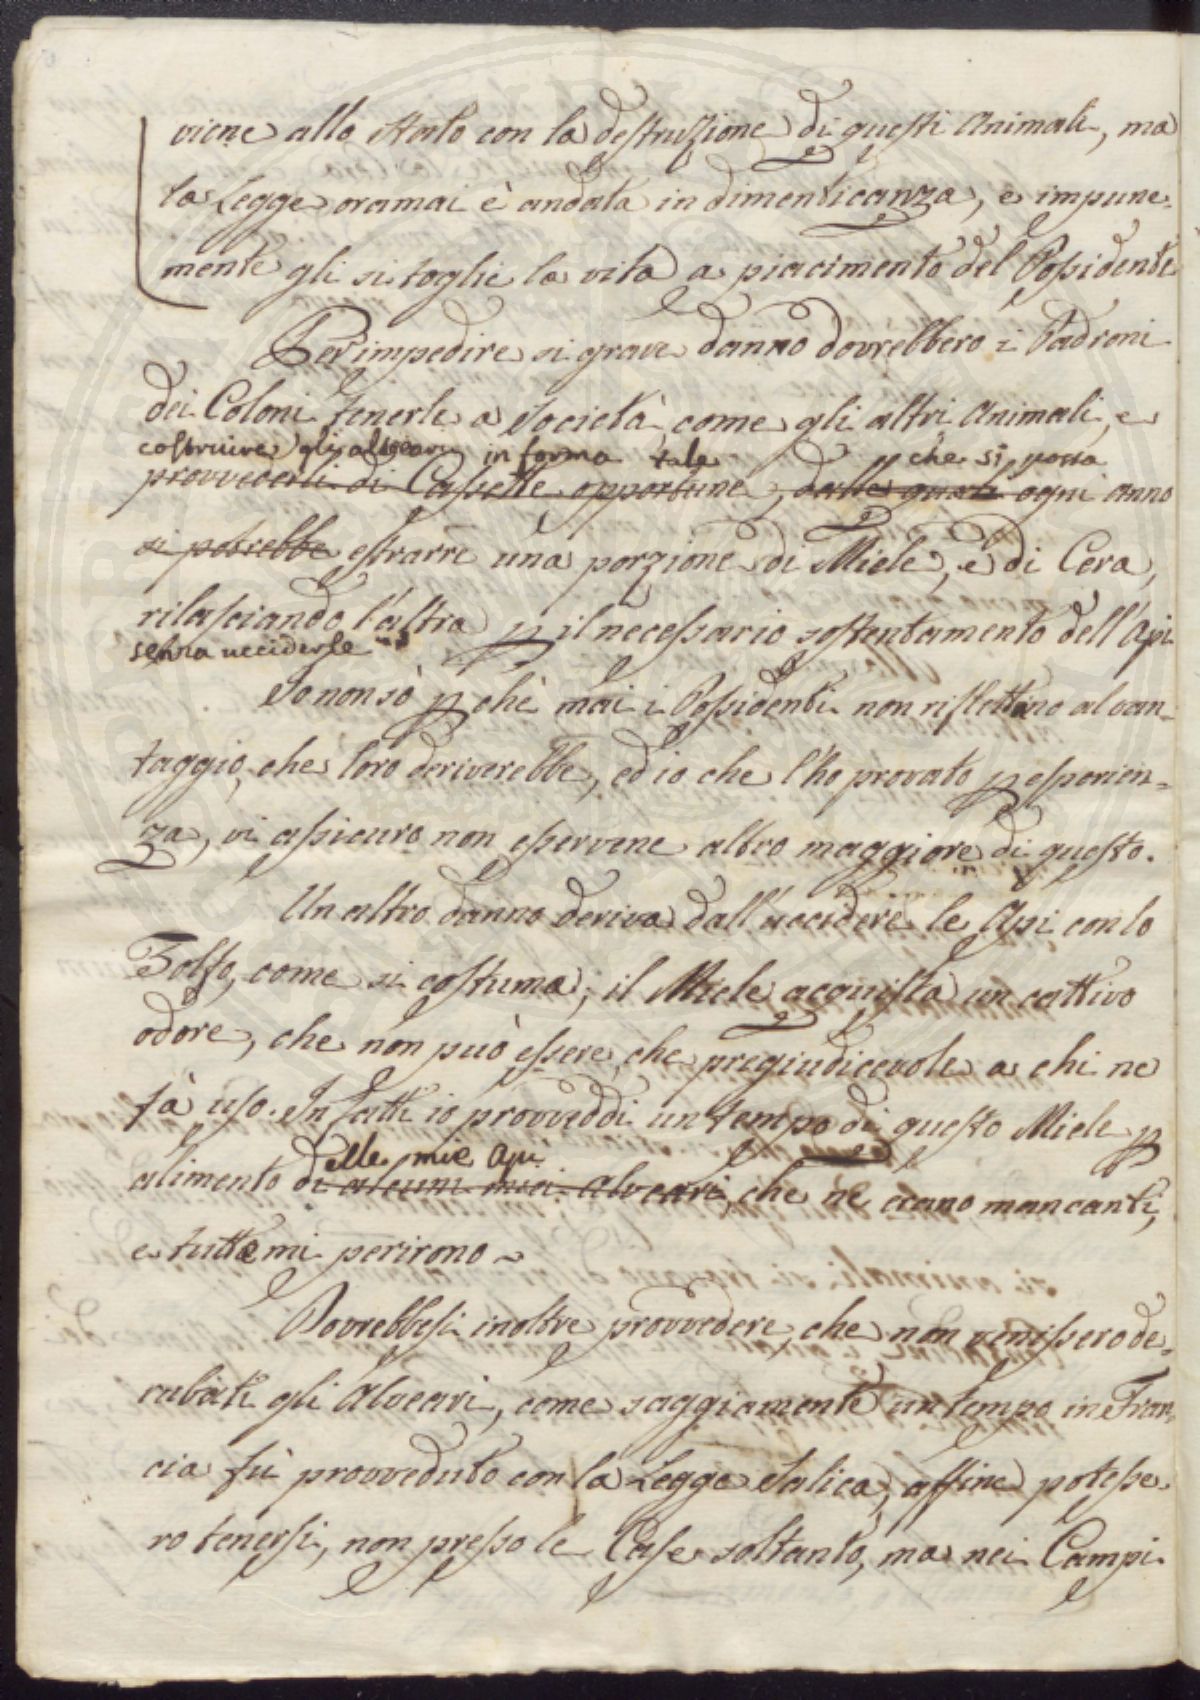 viene allo Stato con la destruzione di questi Animali, ma
la Legge oramai è andata in dimenticanza, e impune-
mente gli si toglie la vita a piacimento del Possidente
Per impedire si grave danno dovrebbero i Padroni
dei Coloni tenerle a Società, come gli altri Animali, e
costruire gli alveari in forma tale che si possa
provvederli di Cassette opportune, dalle quali ogni anno
si potrebbe estrarre una porzione di Miele, e di Cera,
rilasciando l'altra p il necessario sostentamento dell'Api
senza ucciderle
Io non sò p chè mai i Possidenti non riflettano al van-
taggio, che loro deriverebbe, ed io che l'ho provato p esperien-
za, vi assicuro non esservene altro maggiore di questo.
Un altro danno deriva dall'uccidere le Api con lo
Zolfo, come si costuma; il Miele acquista un cattivo
odore, che non può essere, che pregiudicevole a chi ne
fà uso. In fatti io provveddi un tempo di questo Miele p
elle mie Api
alimento di alcuni miei Alveari, che ne erano mancanti,
e tutte mi perirono
Dovrebbesi inoltre provvedere, che non venissero de-
rubati gli Alveari, come saggiamente un tempo in Fran-
cia fù provveduto con la Legge Salica, affine potesse-
ro tenersi, non presso le Case soltanto, ma nei Campi